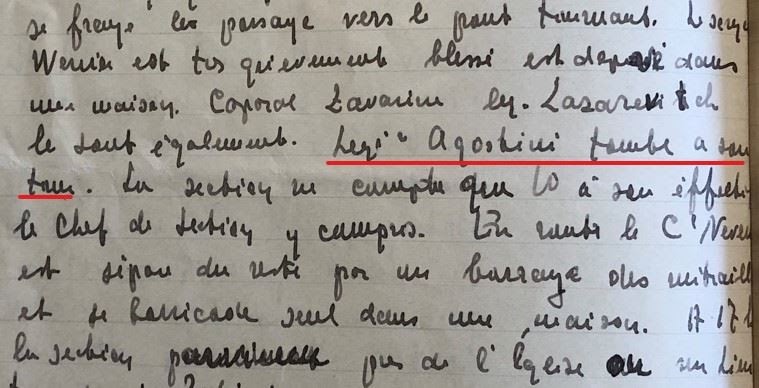 se fraye le passage vers le pont tournant. Le serge
Wenin est tres grievement blessé est deposé dans
une maison. Caporal Zavarine leg. Lazarevitch
le sont également. Legi° Agostini tombe a son
tour. La section ne compte que 10 à son éffecti
le Chef de section y compris. En route le C
est du reste par un barrage des mitraill
et se barricade seul dans une maison. A 17 h
la section pres de l'Eglise un